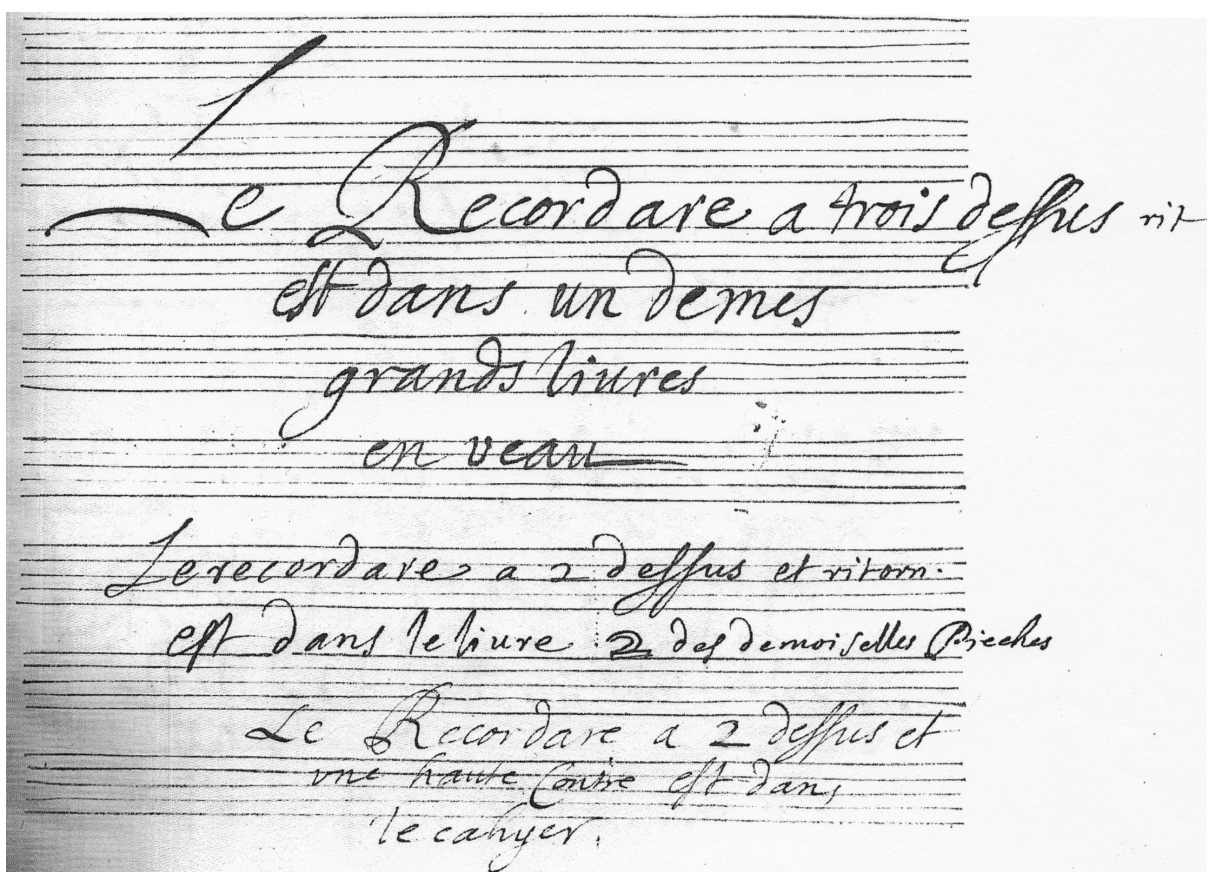 Le Recordare a trois dessus rit
est dans un demes
grands liures
en veau
Le recordare a 2 dessus et ritorn.
est dans le liure 2 des demoiselles Pieches
Le Recordare a 2 dessus et
vne haute Contre est dans
le cahyer.